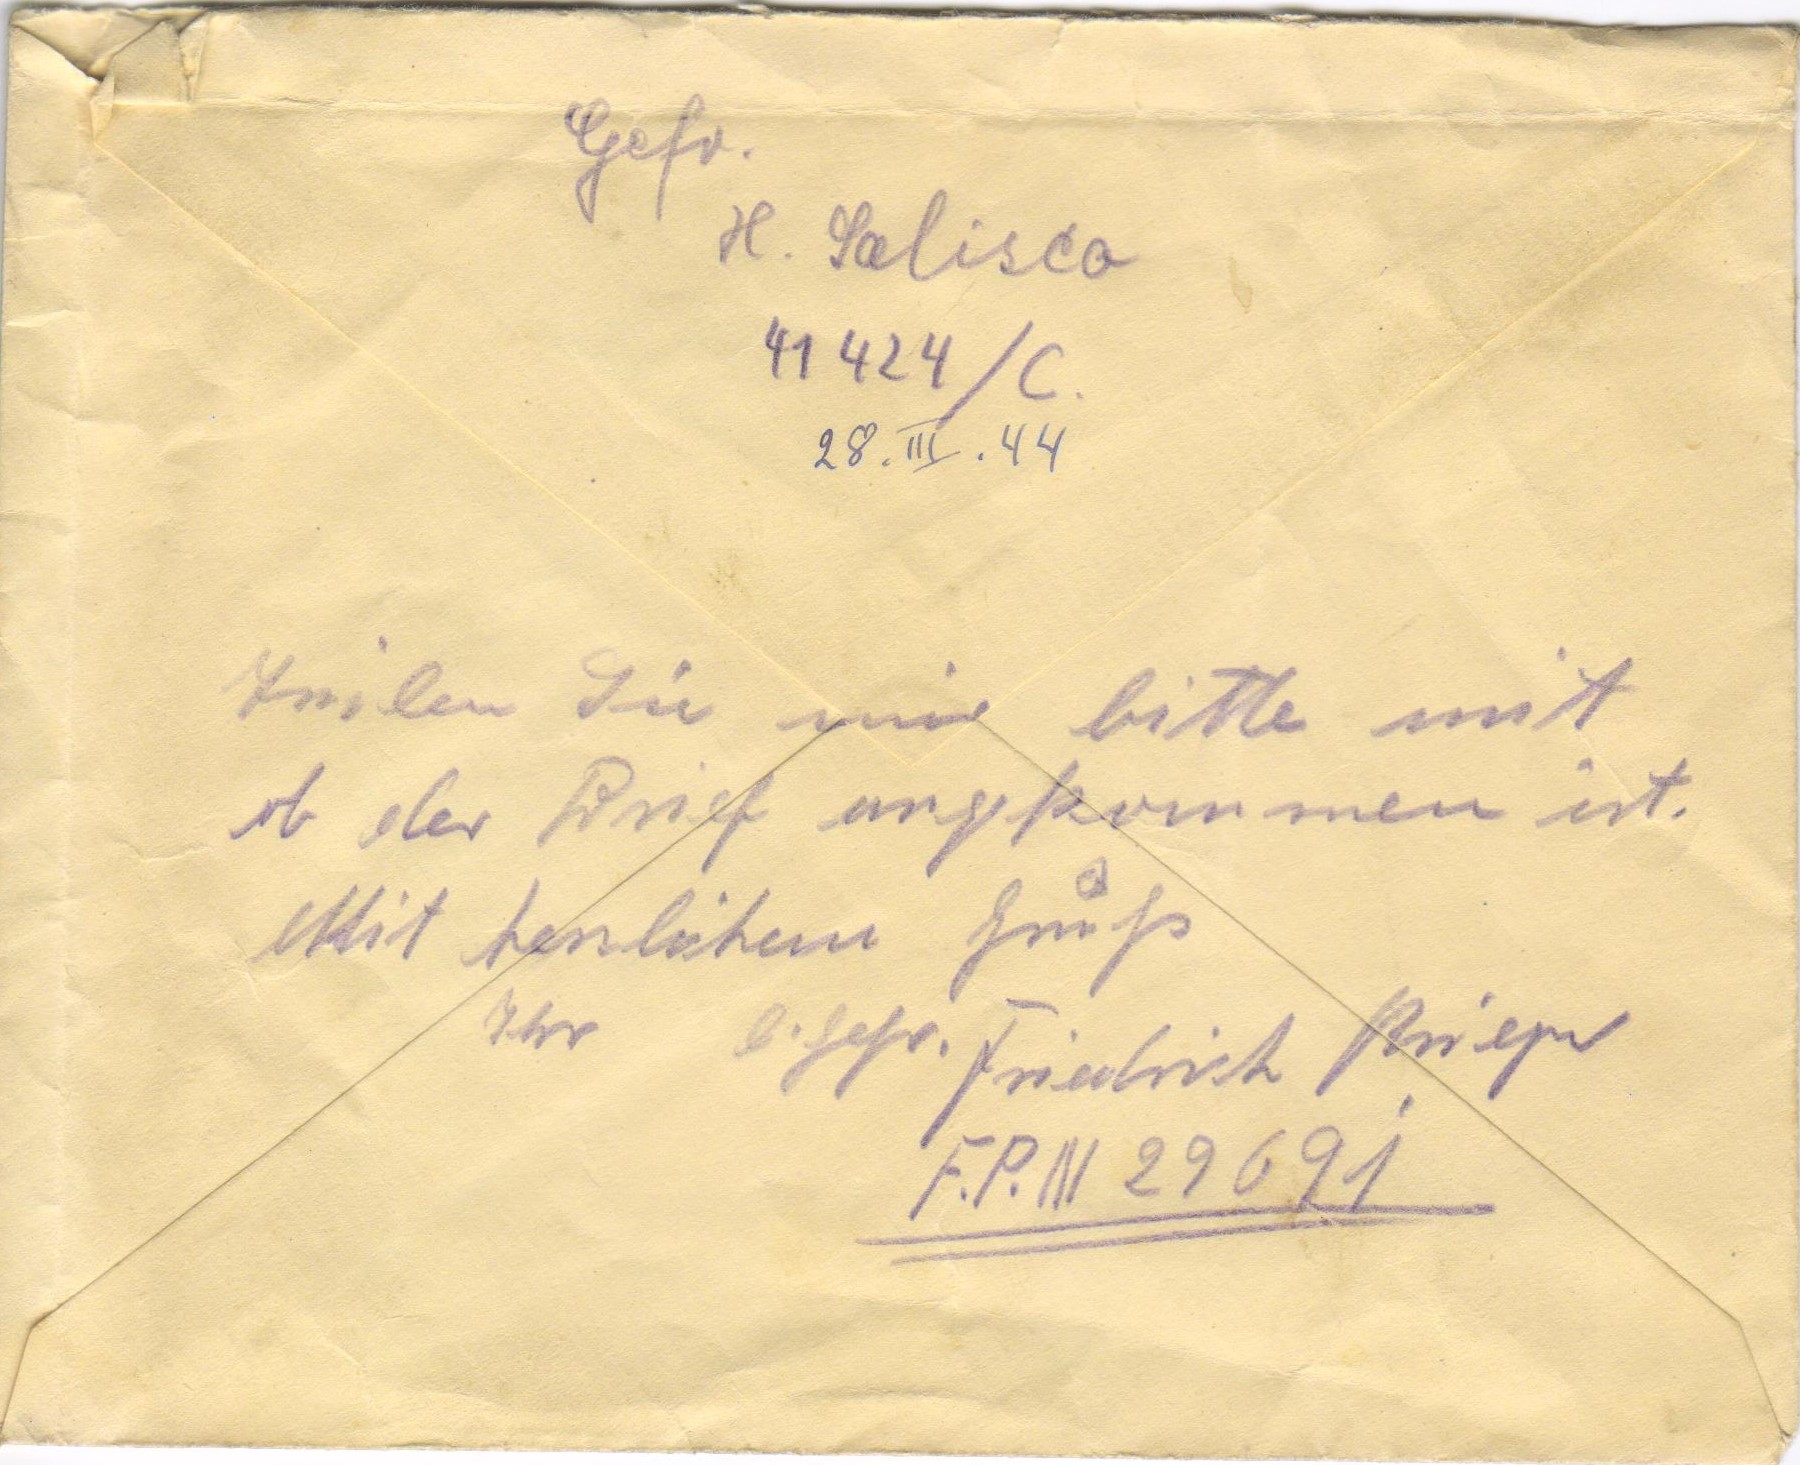 Gefr.
H. Salisco
41 424/C.
28.III.44
Teilen Sie mir bitte mit
ob der Brief angekommen ist.
Mit herzlichem Gruß
Ihr O.Gefr. Friedrich
F.P.N 29691